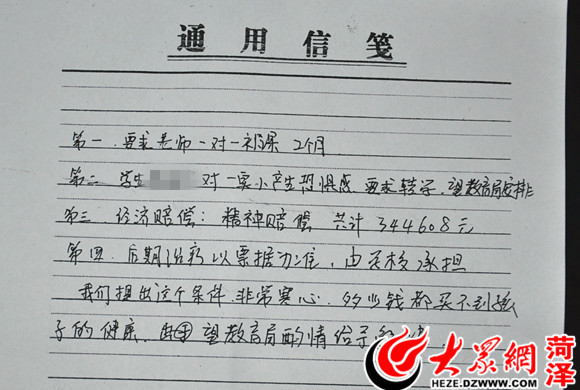 通用信笺
第一、要求老师一对一补课 2个月
第二、学生 对一实小产生恐惧感、要求转学、望教育局安排
第三、经济赔偿:精神赔偿 共计344608元
第四、后期治疗以票据为准,由学校承担
我们提出这个条件、非常寒心、多少钱都买不到孩
子的健康、 望教育局酌情给予
大众網 菏泽
HEZE.DZWWW.COM